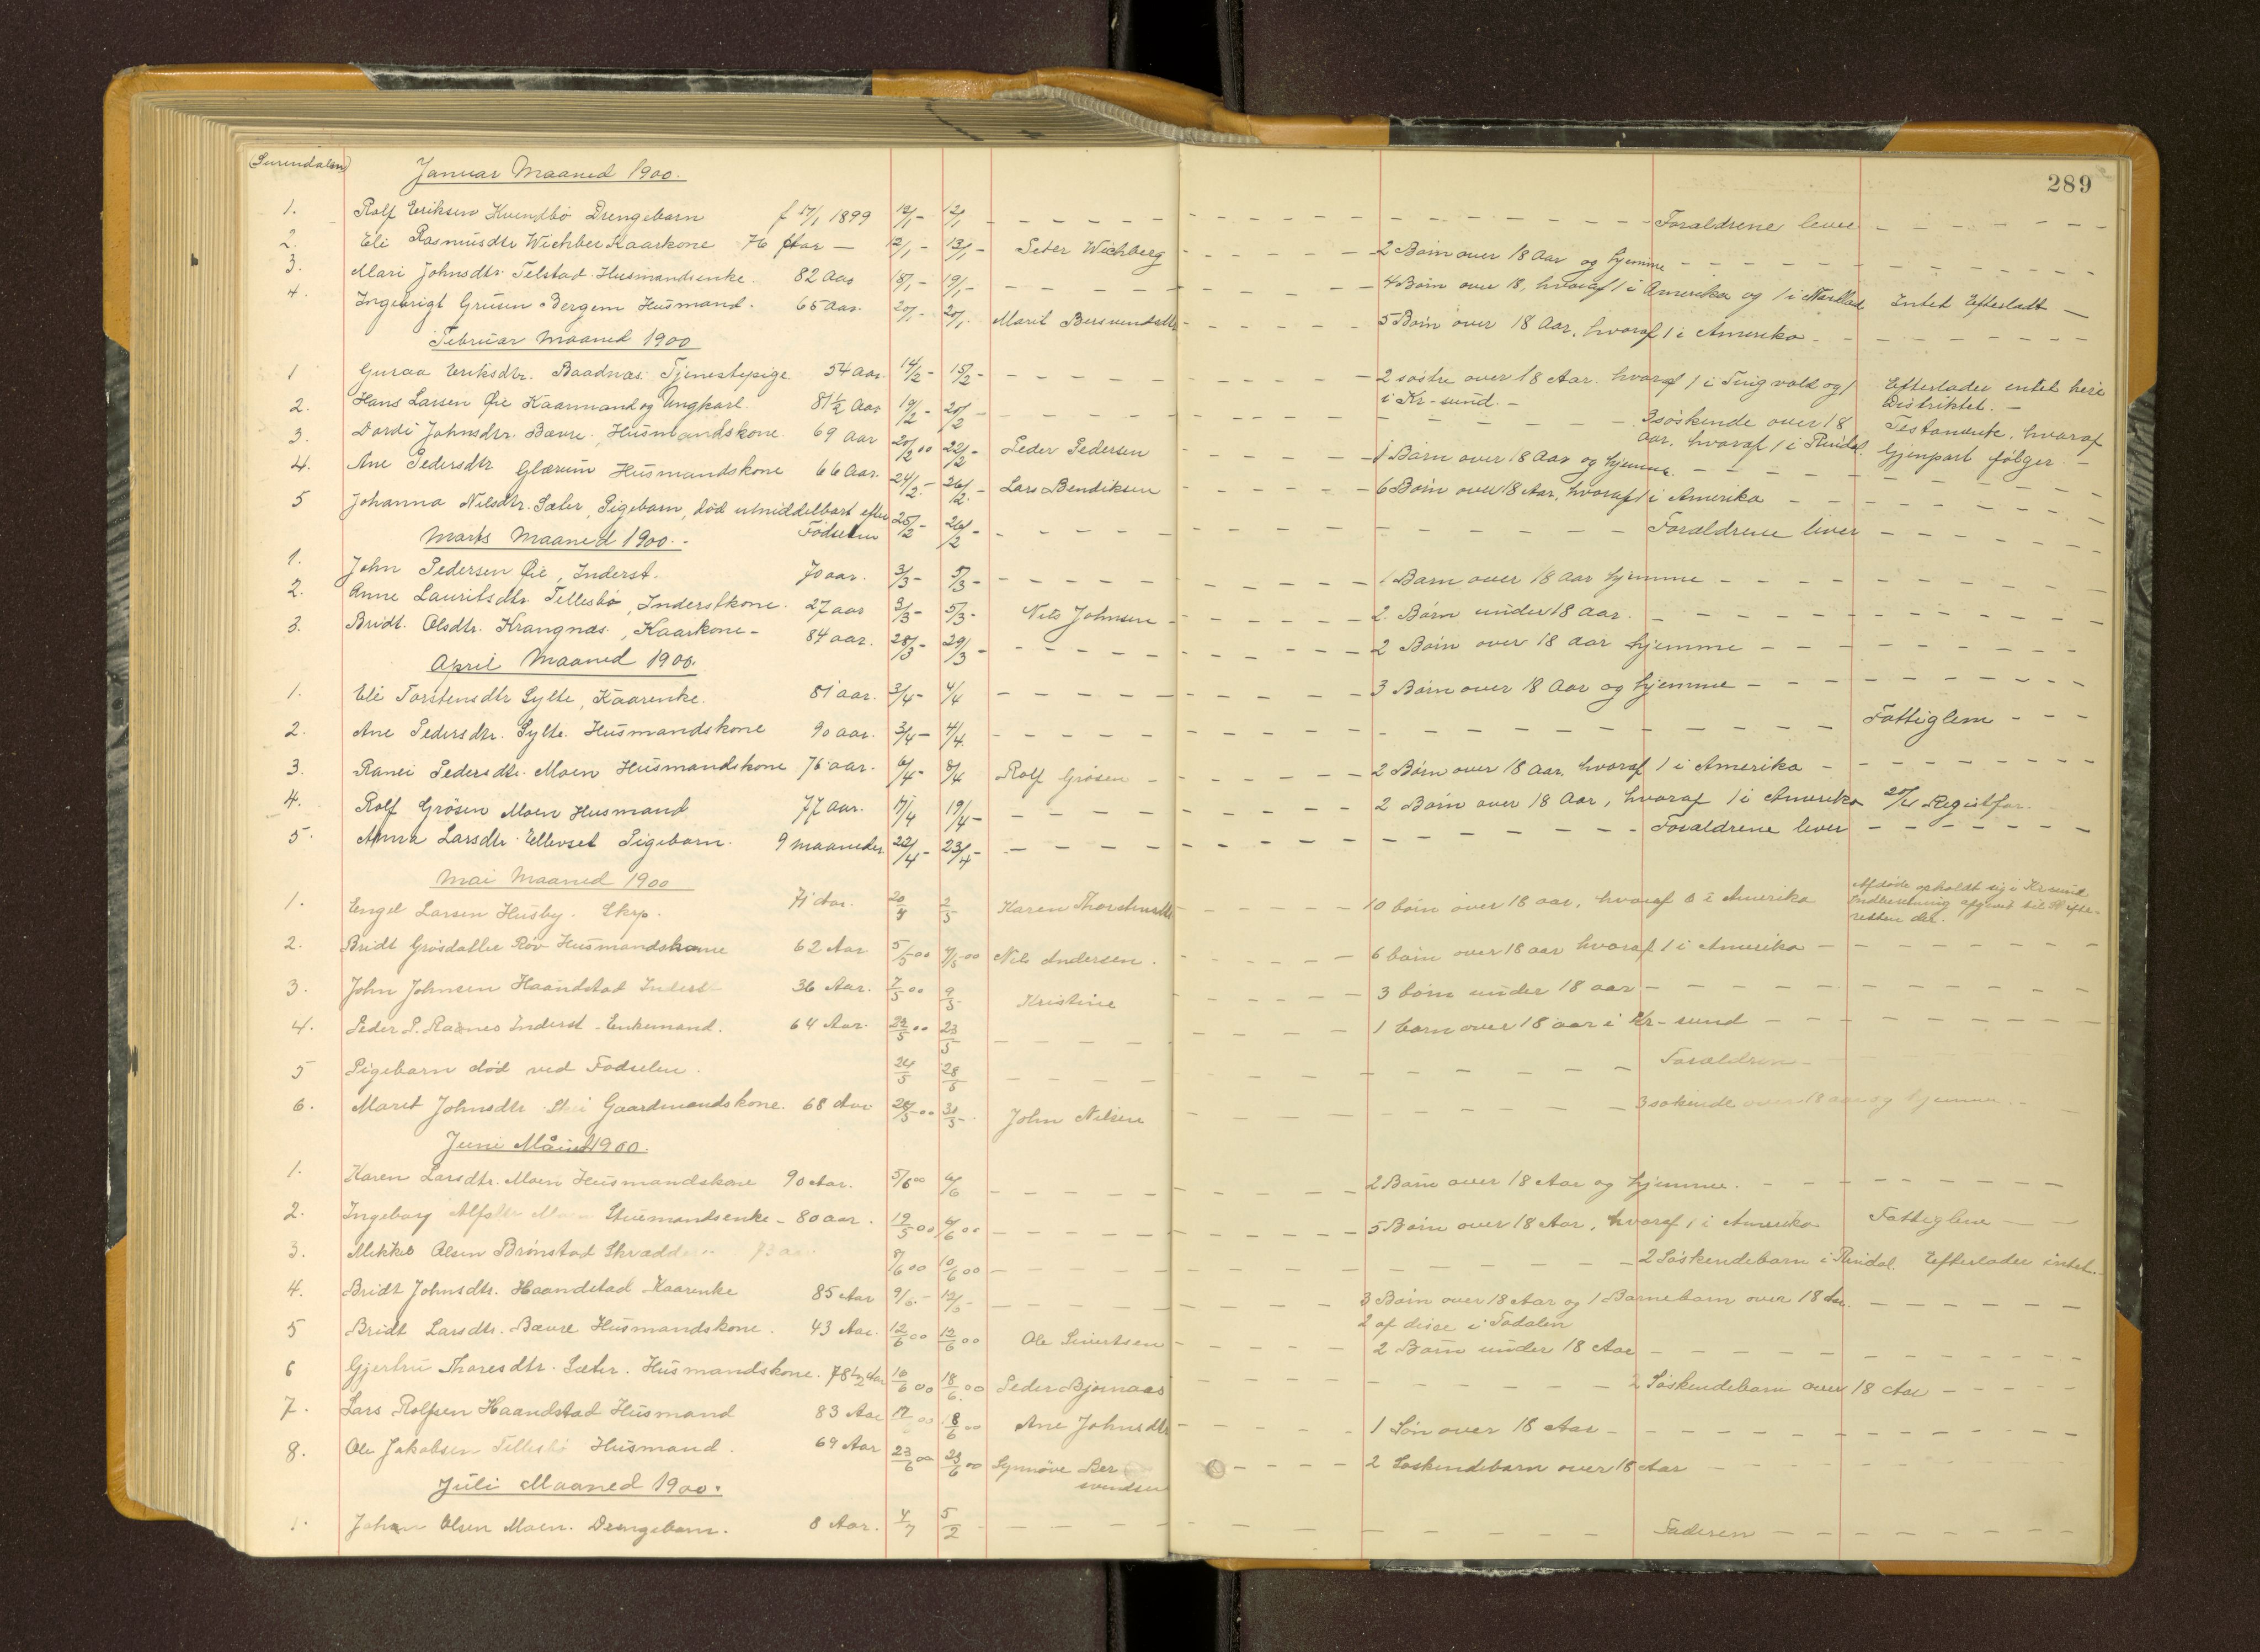 (Surendalen)
289
Januar Maaned 1900.
1. Rolf Eriksen Kvendbø Drengebarn f 17/1 1899 12/1 - 12/1 - Forældrene lever
2. Eli Rasmusdtr Wichber Kaarkone 76 Aar - 12/1 - 13/1 - Peter Wichberg 2 Børn over 18 Aar og hjemme
3. Mari Johnsdtr. Telstad. Husmandsenke. 82 Aar 18/1 - 19/1 - 4 Børn over 18, hvoraf 1 i Amerika og 1 i Intet Efterladt -
4. Ingebrigt Grüsen Bergem Husmand. 65 Aar. 20/1 - 20/1 - Marit Bersvendsdtr 5 Børn over 18 Aar, hvoraf 1 i Amerika -
Februar Maaned 1900
1 Guraa Eriksdtr. Baadnæs. Tjenestepige 54 aar. 14/2 - 15/2 - 2 søstre over 18 Aar. hvoraf 1 i Tingvold og 1 Efterlader intet heri
i Kr-sund. - Distriktet. -
2. Hans Larsen Øie Kaarmand og Ungkarl. 81 1/2 Aar 19/2 - 20/2 - 3 søskende over 18 Testamente, hvoraf
aar, hvoraf 1 i Rindal. Gjenpart følger -
3. Dordi Johnsdtr. Bævre, Husmandskone. 69 Aar 20/2 00 22/2 - Peder Pedersen 1 Barn over 18 Aar og hjemme
4. Ane Pedersdtr Glærum Husmandskone 66 Aar. 24/2 - 26/2 - Lars Bendiksen 6 Børn over 18 Aar, hvoraf 1 i Amerika
5 Johanna Nilsdtr. Sæter, Pigebarn, død umiddelbart efter 25/2 - 26/2 - Forældrene lever
Fødselen
Marts Maaned 1900. -
1. John Pedersen Øie, Inderst. 70 aar. 3/3 - 5/3 - 1 Barn over 18 Aar hjemme
2. Anne Lauritsdtr. Tellesbø, Inderstkone. 27 aar 3/3 - 5/3 - Nils Johnsen 2. Børn under 18 aar.
3. Bridt. Olsdtr. Krangnæs, Kaarkone - 84 aar. 28/3 29/3 - 2 Børn over 18 Aar hjemme
April Maaned 1900.
1. Eli Torstensdtr Sylte, Kaarenke. 81 aar. 3/4 - 4/4 - 3 Børn over 18 Aar og hjemme
2. Ane Pedersdtr. Sylte. Husmandskone 90 aar. 3/4 - 4/4. - Fattiglem
3. Ranei Pedersdtr. Moen Husmandskone 76 aar. 6/4 - 8/4 Rolf Grøsen 2 Børn over 18 aar, hvoraf 1 i Amerika
4. Rolf Grøsen Moen Husmand 77 aar. 17/4 19/4 - 2 Børn over 18 Aar, hvoraf 1 i Amerika 20/4 Registfor.
5. Anna Larsdtr. Ellevset Pigebarn. 9 maaneder 22/4 - 23/4 - Forældrene lever
Mai Maaned 1900
1. Engel Larsen Husby. Skp. 71 Aar. 20/4 2/5 Karen Thorstensdtr 10 børn over 18 aar, hvoraf 8 i Amerika Afdøde opholdt sig i Kr sund
Indberetning afgivet til Skifte-
retten der.
2. Bridt Grøsdatter Røv Husmandskone 62 Aar 5/5 00 7/5 00 Nils Andersen. 6 børn over 18 aar hvoraf 1 i Amerika
3. John Johnsen Haandstad Inderst 36 Aar. 7/5 00 9/5 Kristine 3 børn under 18 aar
4. Peder P. Ranes Inderst - Enkemand. 64 Aar. 22/5 00 23/5 1 barn over 18 aar i Kr-sund
5 Pigebarn død ved Fødselen. 24/5 28/5 Forældren
6. Marit Johnsdtr Skei Gaardmandskone. 68 Aar 28/5 00 30/5 - John Nilsen 3 søkende over 18 aar og hjemme.
Juni Måned 1900.
1. Karen Larsdtr. Moen Husmandskone 90 Aar. 5/6 00 6/6 2 Børn over 18 Aar og hjemme.
2. Ingeborg Moen Husmandsenke - 80 aar. 19/5 00 4/6 00 5 Børn over 18 Aar, hvoraf 1 i Amerika Fattiglem
3. Mikkel Olsen Brønstad Skrædder 73 aar 8/6 00 10/6 00 2 Søskendebarn i Rindal. Efterlader intet.
4. Bridt Johnsdtr. Haandstad Kaarenke 85 Aar 9/5 - 12/5 - 3 Børn over 18 Aar og 1 Barnebarn over 18 Aar.
2 af disse i Todalen
5 Bridt Larsdtr. Bævre Husmandskone. 43 Aar. 12/6 00 12/6 00 Ole Sivertsen 2 Børn under 18 Aar
6 Gjertru Thoresdtr. Sæter. Husmandskone. 78 1/2 Aar 16/6 00 18/6. 00 Peder Bjørnaas 2 Søskendebarn over 18 Aar
7. Lars Rolfsen Haandstad Husmand 83 Aar 17 00 18/6 00 Ane Johnsdtr 1 Søn over 18 Aar
8. Ole Jakobsen Tellesbø Husmand. 69 Aar 23/6 00 23/6 00 Synnøve Ber 2 Søskendebarn over 18 Aar
svendsen
Juli Maaned 1900.
1. Johan Olsen Moen. Drengebarn. 8 Aar. 4/7 5/2 Faderen